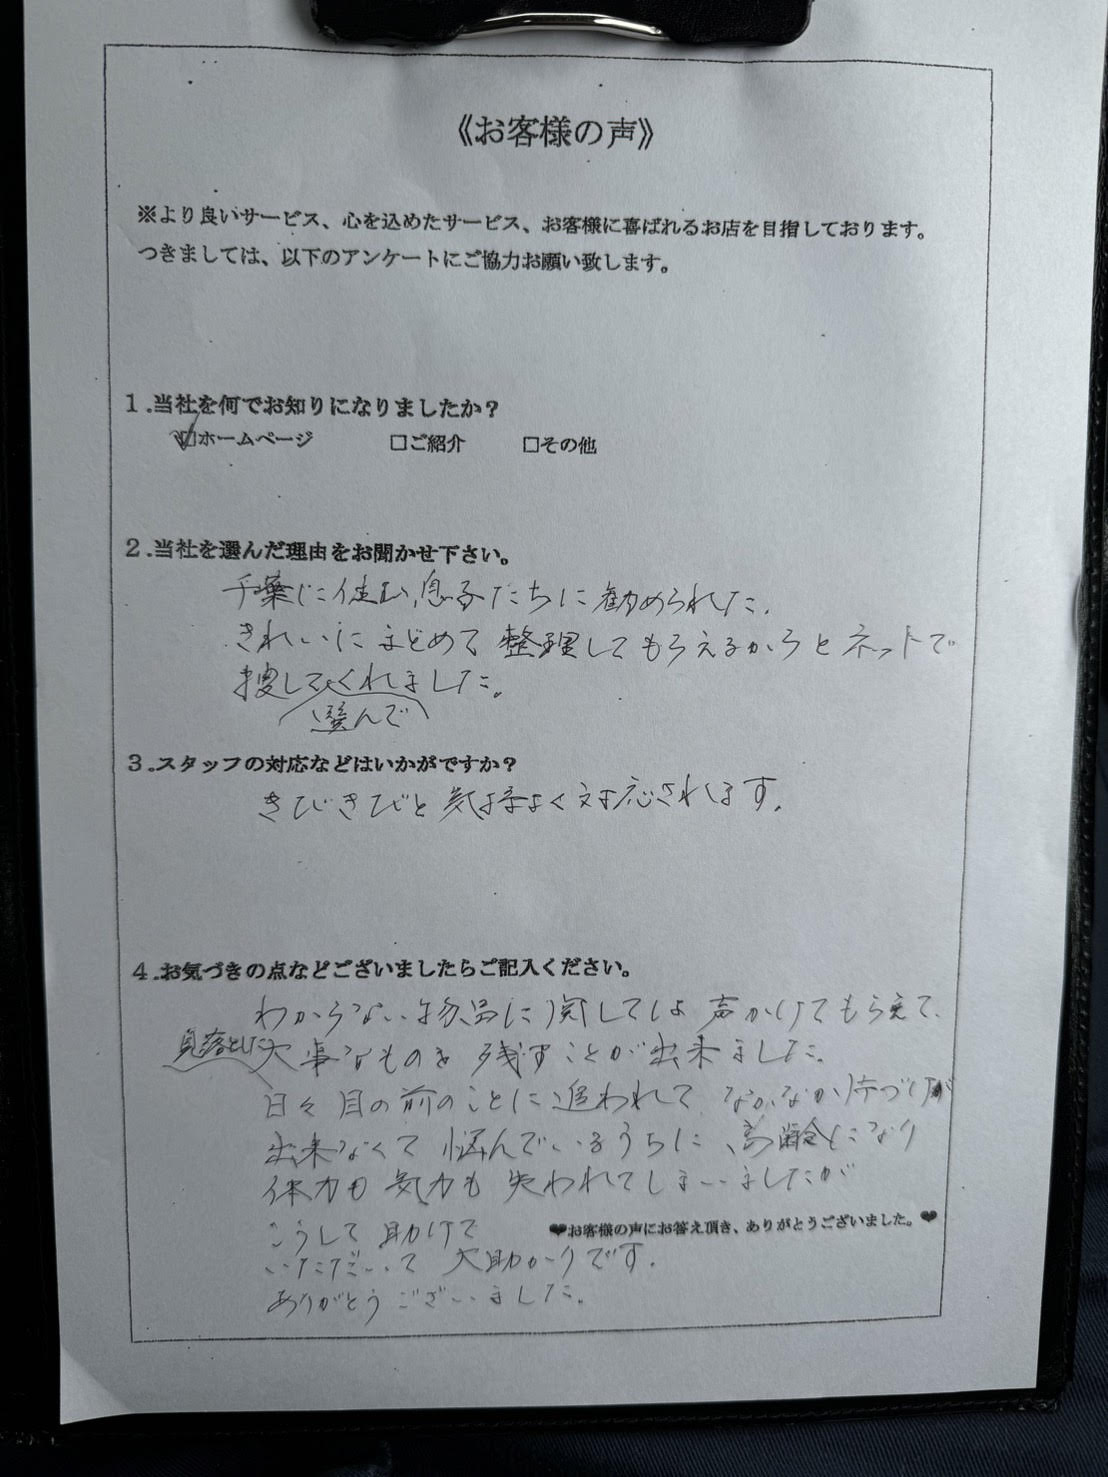 《お客様の声》
※より良いサービス、心を込めたサービス、お客様に喜ばれるお店を目指しております。
つきましては、以下のアンケートにご協力お願い致します。
1.当社を何でお知りになりましたか？
☑ホームページ □ご紹介 □その他
2.当社を選んだ理由をお聞かせ下さい。
千葉に住む息子たちに勧められた。
きれいにまとめて整理してもらえるからとネットで
捜してくれました。
選んで
3.スタッフの対応などはいかがですか？
きびきびと気持よく対応されます。
4.お気づきの点などございましたらご記入ください。
わからない物品に関しては声かけてもらえて、
見落とした大事なものを残すことが出来ました。
日々目の前のことに追われて なかなか片づけが
出来なくて悩んでいるうちに、高齢になり
体力も気力も失われてしまいましたが
こうして助けて
♥お客様の声にお答え頂き、ありがとうございました。♥
いただいて大助かりです。
ありがとうございました。